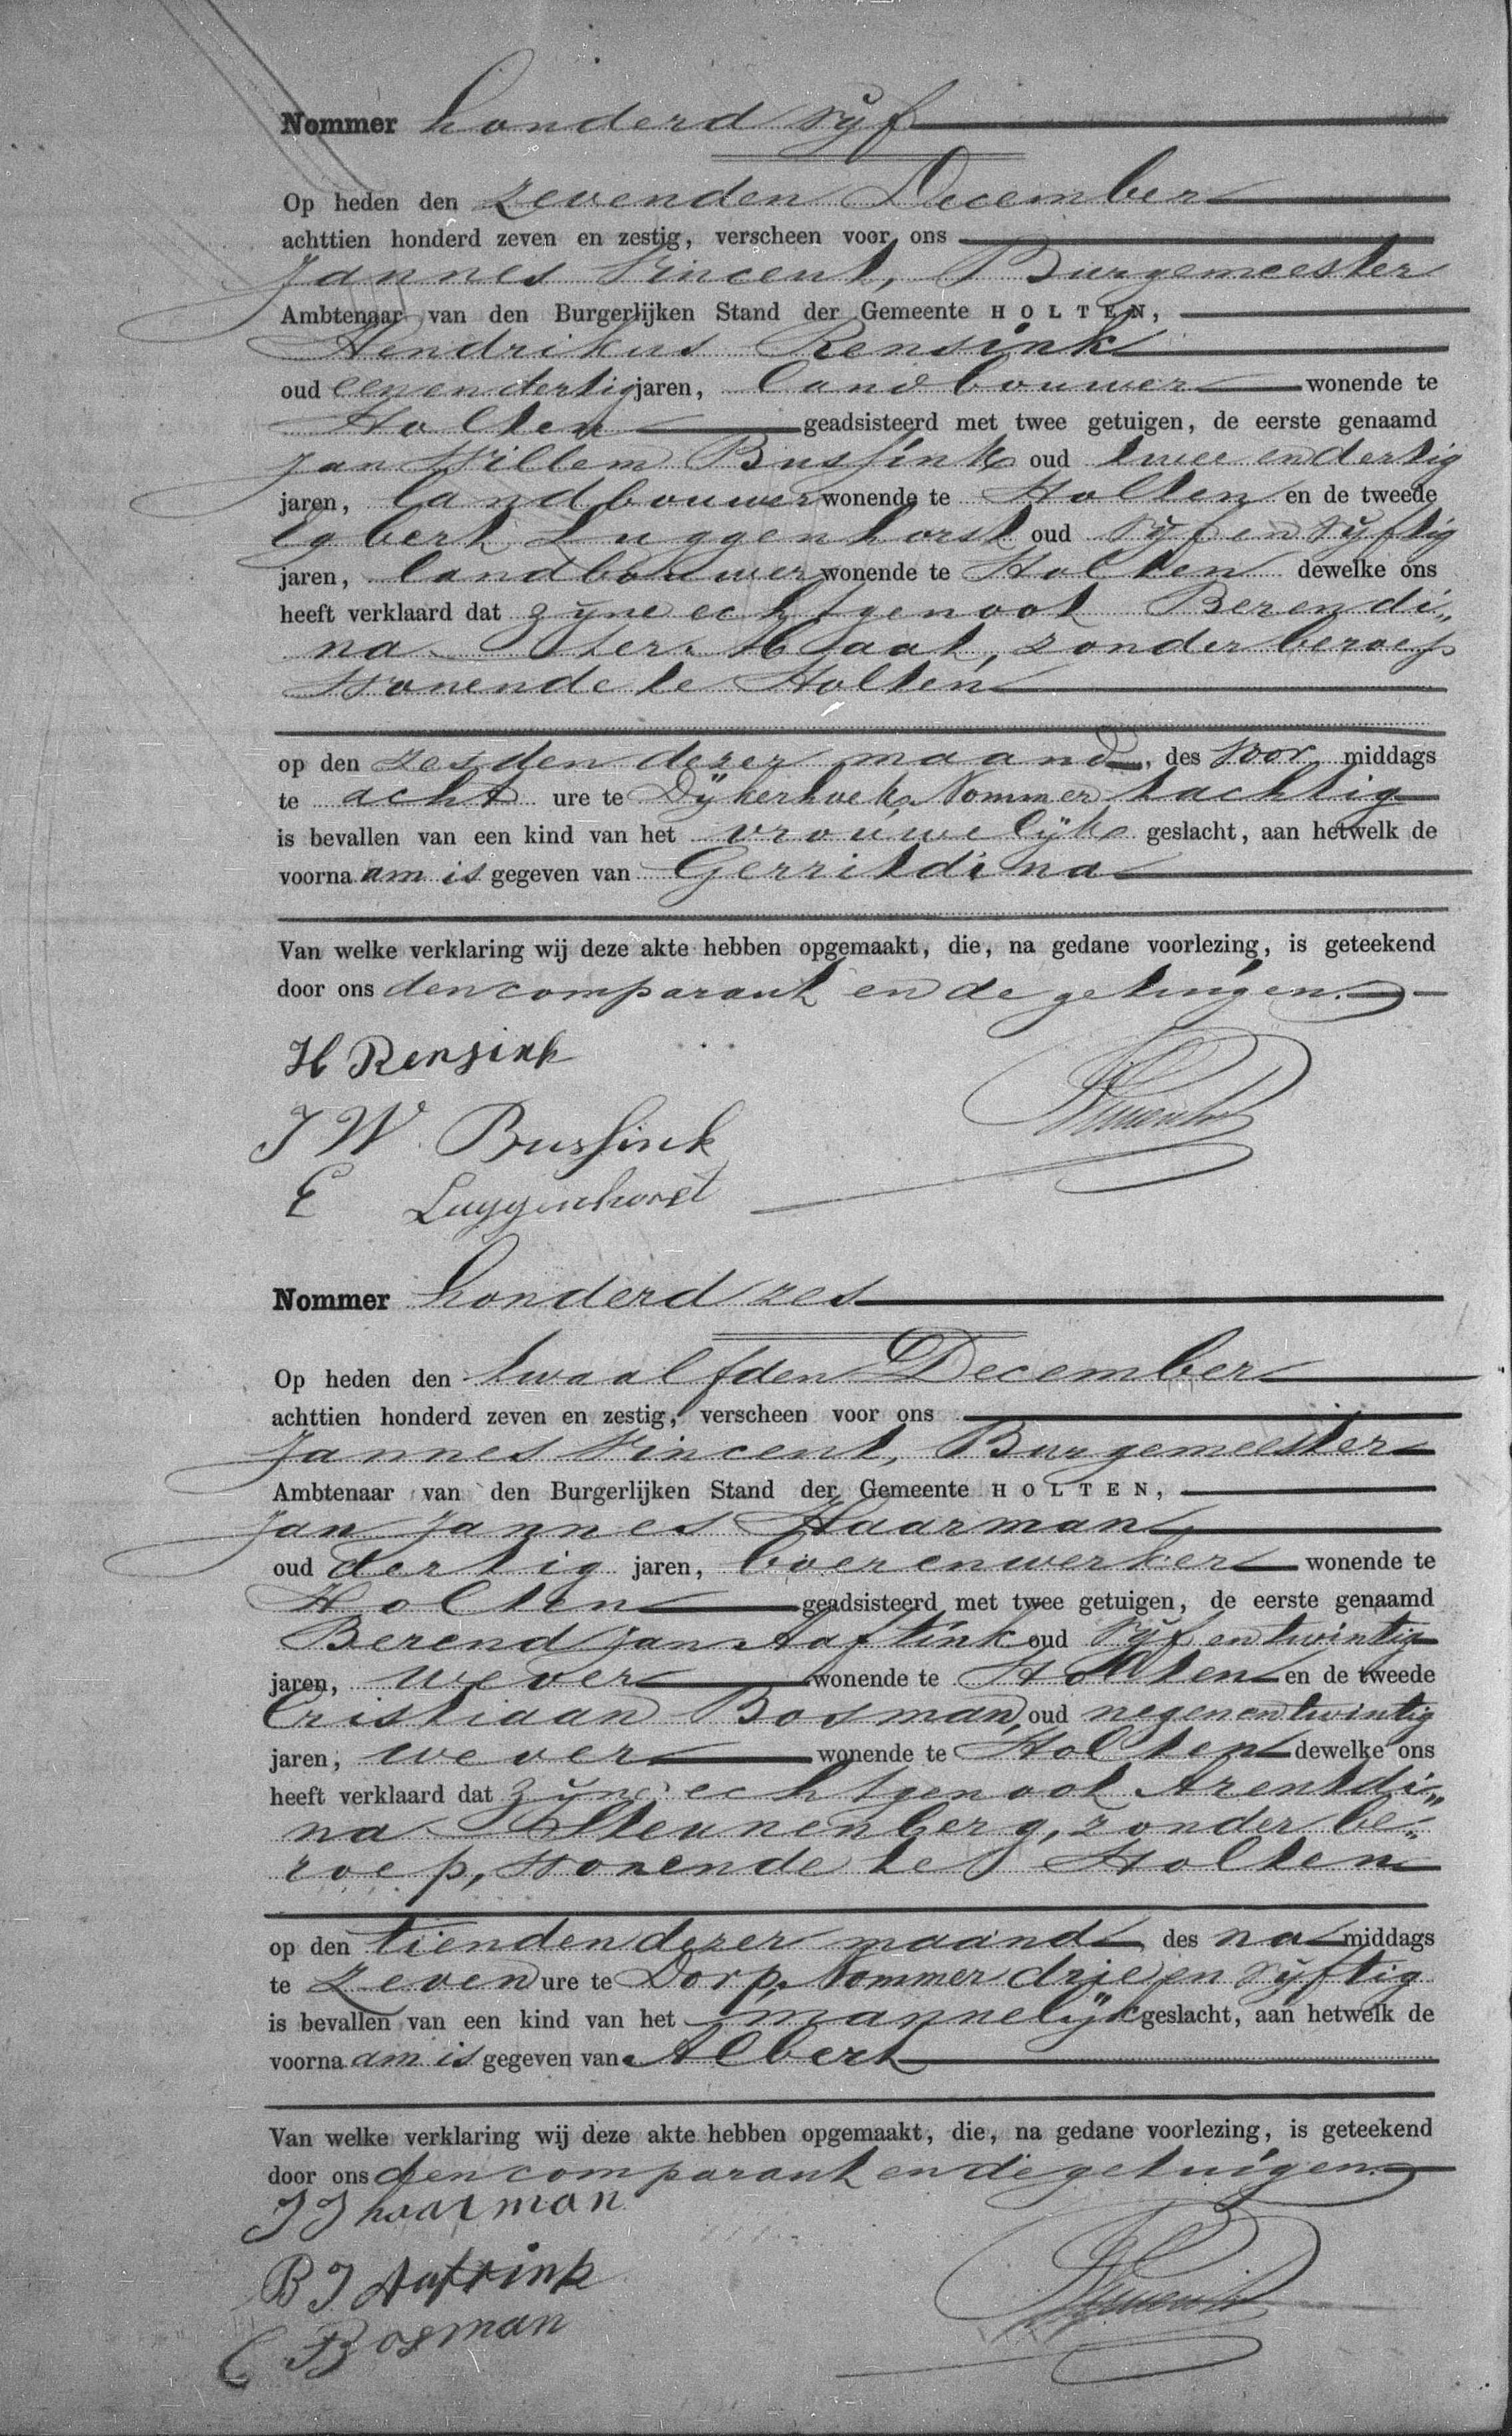 Nommer honderd vijf
Op heden den zevenden December
achttien honderd zeven en zestig, verscheen voor ons
Jannes Vincent, Burgemeester
Ambtenaar van den Burgerlijken Stand der Gemeente HOLTEN,
Hendrikus Rensink
oud eenendertig jaren, landbouwer wonende te
Holten geadsisteerd met twee getuigen, de eerste genaamd
Jan Willem Bussink oud twee en dertig
jaren, landbouwer wonende te Holten en de tweede
Egbert Luggenhorst oud vijf en vijftig
jaren, landbouwer wonende te Holten dewelke ons
heeft verklaard dat zijne echtgenoot Berendi„
na ter Haat, zonder beroep
Wonende te Holten
op den zesden dezer maand, des voor middags
te acht ure te Dijkerhoek Nommer tachtig
is bevallen van een kind van het vrouwelijk geslacht, aan hetwelk de
voornaam is gegeven van Gerritdina
Van welke verklaring wij deze akte hebben opgemaakt, die, na gedane voorlezing, is geteekend
door ons den comparant en de getuigen.
H Rensink
J W Bussink
E Luggenhorst
Nommer honderd zes
Op heden den twaalfden December
achttien honderd zeven en zestig, verscheen voor ons
Jannes Vincent, Burgemeester
Ambtenaar van den Burgerlijken Stand der Gemeente HOLTEN,
Jan Jannes Haarman
oud dertig jaren, boerenwerker wonende te
Holten geadsisteerd met twee getuigen, de eerste genaamd
Berend Jan Aaftink oud vijf en twintig
jaren, wever wonende te Holten en de tweede
Cristiaan Bosman, oud negenentwintig
jaren, wever wonende te Holten dewelke ons
heeft verklaard dat zijne echtgenoot Arentdi„
na Steunenberg, zonder be„
roep, wonende te Holten
op den tienden dezer maand des na middags
te zeven ure te Dorp, Nommer drie en vijftig
is bevallen van een kind van het mannelijk geslacht, aan hetwelk de
voornaam is gegeven van Albert
Van welke verklaring wij deze akte hebben opgemaakt, die, na gedane voorlezing, is geteekend
door ons den comparant en de getuigen.
J J haarman
B J Aaftink
C Bosman